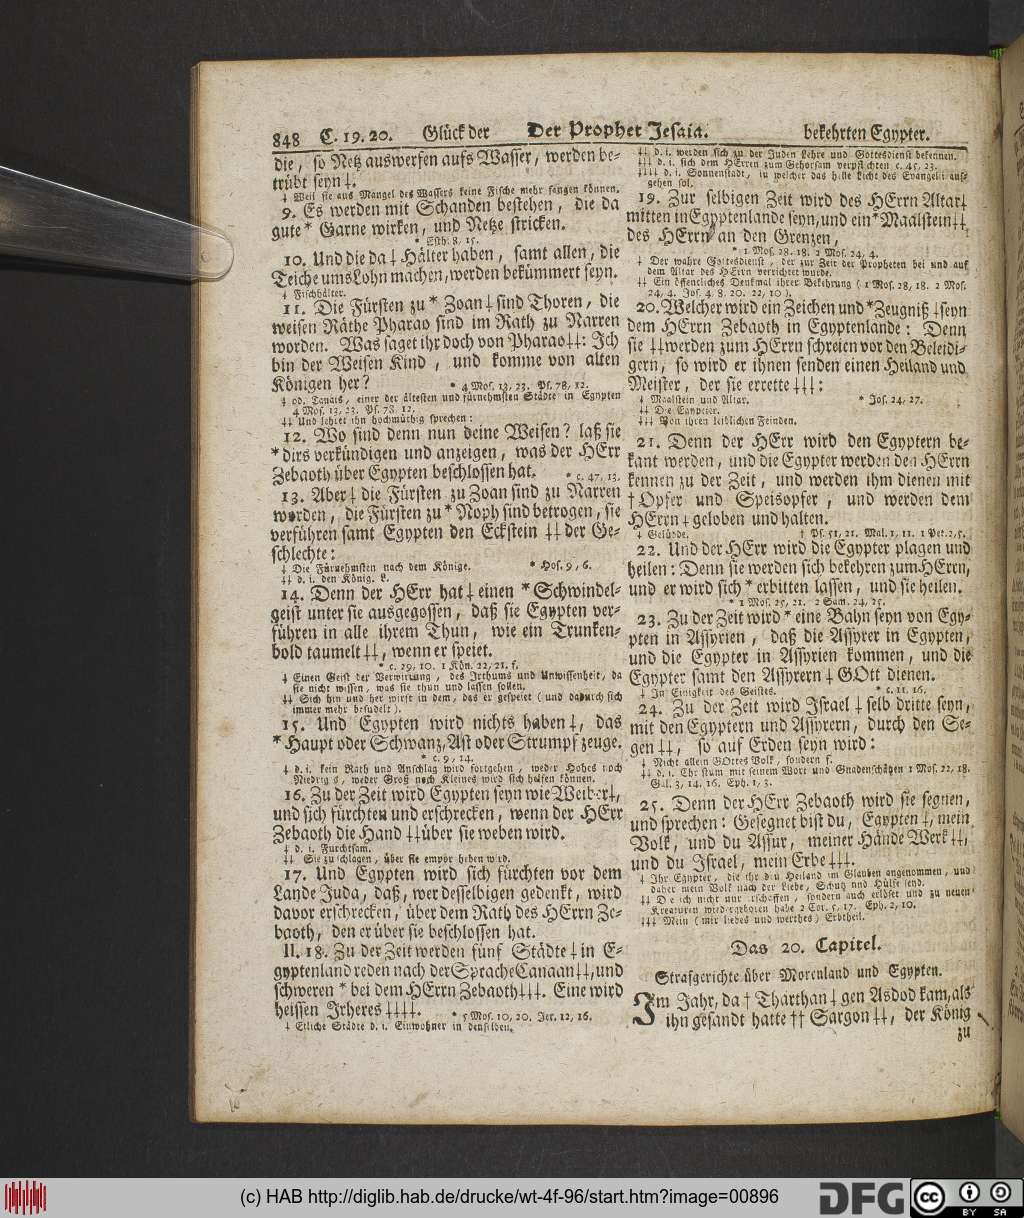 848 C. 19. 20. Glück der Der Prophet Jesaia. bekehrten Egypter.
die, so Netz auswerfen aufs Wasser, werden be-
trübt seyn ‡.
‡ Weil sie aus Mangel des Wassers keine Fische mehr fangen können.
9. Es werden mit Schanden bestehen, die da
gute * Garne wirken, und Netze stricken.
* Esth. 8, 15.
10. Und die da ‡ Hälter haben, samt allen, die
Teiche ums Lohn machen, werden bekümmert seyn.
‡ Fischhälter.
11. Die Fürsten zu * Zoan ‡ sind Thoren, die
weisen Räthe Pharao sind im Rath zu Narren
worden. Was saget ihr doch von Pharao ‡‡: Ich
bin der Weisen Kind, und komme von alten
Königen her?
* 4 Mos. 13, 23. Ps. 78, 12.
‡ od. Tanais, einer der ältesten und fürnehmsten Städte in Egypten
4 Mos. 13, 23. Ps. 78, 12.
‡‡ Und lehret ihn hochmüthig sprechen:
12. Wo sind denn nun deine Weisen? laß sie
* dirs verkündigen und anzeigen, was der HErr
Zebaoth über Egypten beschlossen hat.
* c. 47, 13.
13. Aber ‡ die Fürsten zu Zoan sind zu Narren
worden, die Fürsten zu * Noph sind betrogen, sie
verführen samt Egypten den Eckstein ‡‡ der Ge-
schlechte:
‡ Die Fürnehmsten nach dem Könige. * Hos. 9, 6.
‡‡ d. i. den König. L.
14. Denn der HErr hat ‡ einen * Schwindel-
geist unter sie ausgegossen, daß sie Egypten ver-
führen in alle ihrem Thun, wie ein Trunken-
bold taumelt ‡‡, wenn er speiet.
* c. 29, 10. 1 Kön. 22, 21. f.
‡ Einen Geist der Verwirrung, des Irthums und Unwissenheit, da
sie nicht wissen, was sie thun und lassen sollen.
‡‡ Sich hin und her wirft in dem, das er gespeiet (und dadurch sich
immer mehr besudelt).
15. Und Egypten wird nichts haben ‡, das
* Haupt oder Schwanz, Ast oder Strumpf zeuge.
* c. 9, 14.
‡ d. i. kein Rath und Anschlag wird fortgehen, weder Hohes noch
Niedriges, weder Groß noch Kleines wird sich helfen können.
16. Zu der Zeit wird Egypten seyn wie Weiber ‡,
und sich fürchten und erschrecken, wenn der HErr
Zebaoth die Hand ‡‡ über sie weben wird.
‡ d. i. Furchtsam.
‡‡ Sie zu schlagen, über sie empor heben wird.
17. Und Egypten wird sich fürchten vor dem
Lande Juda, daß, wer desselbigen gedenkt, wird
davor erschrecken, über dem Rath des HErrn Ze-
baoth, den er über sie beschlossen hat.
II. 18. Zu der Zeit werden fünf Städte ‡ in E-
gyptenland reden nach der Sprache Canaan ‡‡, und
schweren * bei dem HErrn Zebaoth ‡‡‡. Eine wird
heissen Irheres ‡‡‡‡.
* 5 Mos. 10, 20. Jer. 12, 16.
‡ Etliche Städte d. i. Einwohner in denselben.
‡‡ d. i. werden sich zu der Juden Lehre und Gottesdienst bekennen.
‡‡‡ d. i. sich dem HErren zum Gehorsam verpflichten c. 45, 23.
‡‡‡‡ d. i. Sonnenstadt, in welcher das helle Licht des Evangelii auf-
gehen sol.
19. Zur selbigen Zeit wird des HErrn Altar ‡
mitten in Egyptenlande seyn, und ein * Maalstein ‡‡
des HErrn an den Grenzen,
* 1 Mos. 28, 18. 2 Mos. 24, 4.
‡ Der wahre Gottesdienst, der zur Zeit der Propheten bei und auf
dem Altar des HErrn verrichtet wurde.
‡‡ Ein öffentliches Denkmal ihrer Bekehrung (1 Mos. 28, 18. 2 Mos.
24, 4. Jos. 4, 8. 20. 22, 10).
20. Welcher wird ein Zeichen und * Zeugniß ‡ seyn
dem HErrn Zebaoth in Egyptenlande: Denn
sie ‡‡ werden zum HErrn schreien vor den Beleidi-
gern, so wird er ihnen senden einen Heiland und
Meister, der sie errette ‡‡‡:
‡ Maalstein und Altar. * Jos. 24, 27.
‡‡ Die Egyptier.
‡‡‡ Von ihren leiblichen Feinden.
21. Denn der HErr wird den Egyptern be-
kant werden, und die Egypter werden den HErrn
kennen zu der Zeit, und werden ihm dienen mit
† Opfer und Speisopfer, und werden dem
HErrn ‡ geloben und halten.
‡ Gelübde. † Ps. 51, 21. Mal. 1, 11. 1 Pet. 2, 5.
22. Und der HErr wird die Egypter plagen und
heilen: Denn sie werden sich bekehren zum HErrn,
und er wird sich * erbitten lassen, und sie heilen.
* 1 Mos. 25, 21. 2 Sam. 24, 25.
23. Zu der Zeit wird * eine Bahn seyn von Egy-
pten in Assyrien, daß die Assyrer in Egypten,
und die Egypter in Assyrien kommen, und die
Egypter samt den Assyrern ‡ GOtt dienen.
‡ In Einigkeit des Geistes. * c. 11, 16.
24. Zu der Zeit wird Israel ‡ selb dritte seyn,
mit den Egyptern und Assyrern, durch den Se-
gen ‡‡, so auf Erden seyn wird:
‡ Nicht allein GOttes Volk, sondern s.
‡‡ d. i. Christum mit seinem Wort und Gnadenschätzen 1 Mos. 22, 18.
Gal. 3, 14. 16. Eph. 1, 3.
25. Denn der HErr Zebaoth wird sie segnen,
und sprechen: Gesegnet bist du, Egypten ‡, mein
Volk, und du Assur, meiner Hände Werk ‡‡,
und du Israel, mein Erbe ‡‡‡.
‡ Ihr Egypter, die ihr den Heiland im Glauben angenommen, und
daher mein Volk nach der Liebe, Schutz und Hülfe seyd.
‡‡ Die ich nicht nur erschaffen, sondern auch erlöset und zu neuen
Kreaturen wiedergeboren habe 2 Cor. 5, 17. Eph. 2, 10.
‡‡‡ Mein (mir liebes und werthes) Erbtheil.
Das 20. Capitel.
Strafgerichte über Morenland und Egypten.
Im Jahr, da † Tharthan ‡ gen Asdod kam, als
ihn gesandt hatte †† Sargon ‡‡, der König
zu
(c) HAB http://diglib.hab.de/drucke/wt-4f-96/start.htm?image=00896
DFG
cc
BY SA